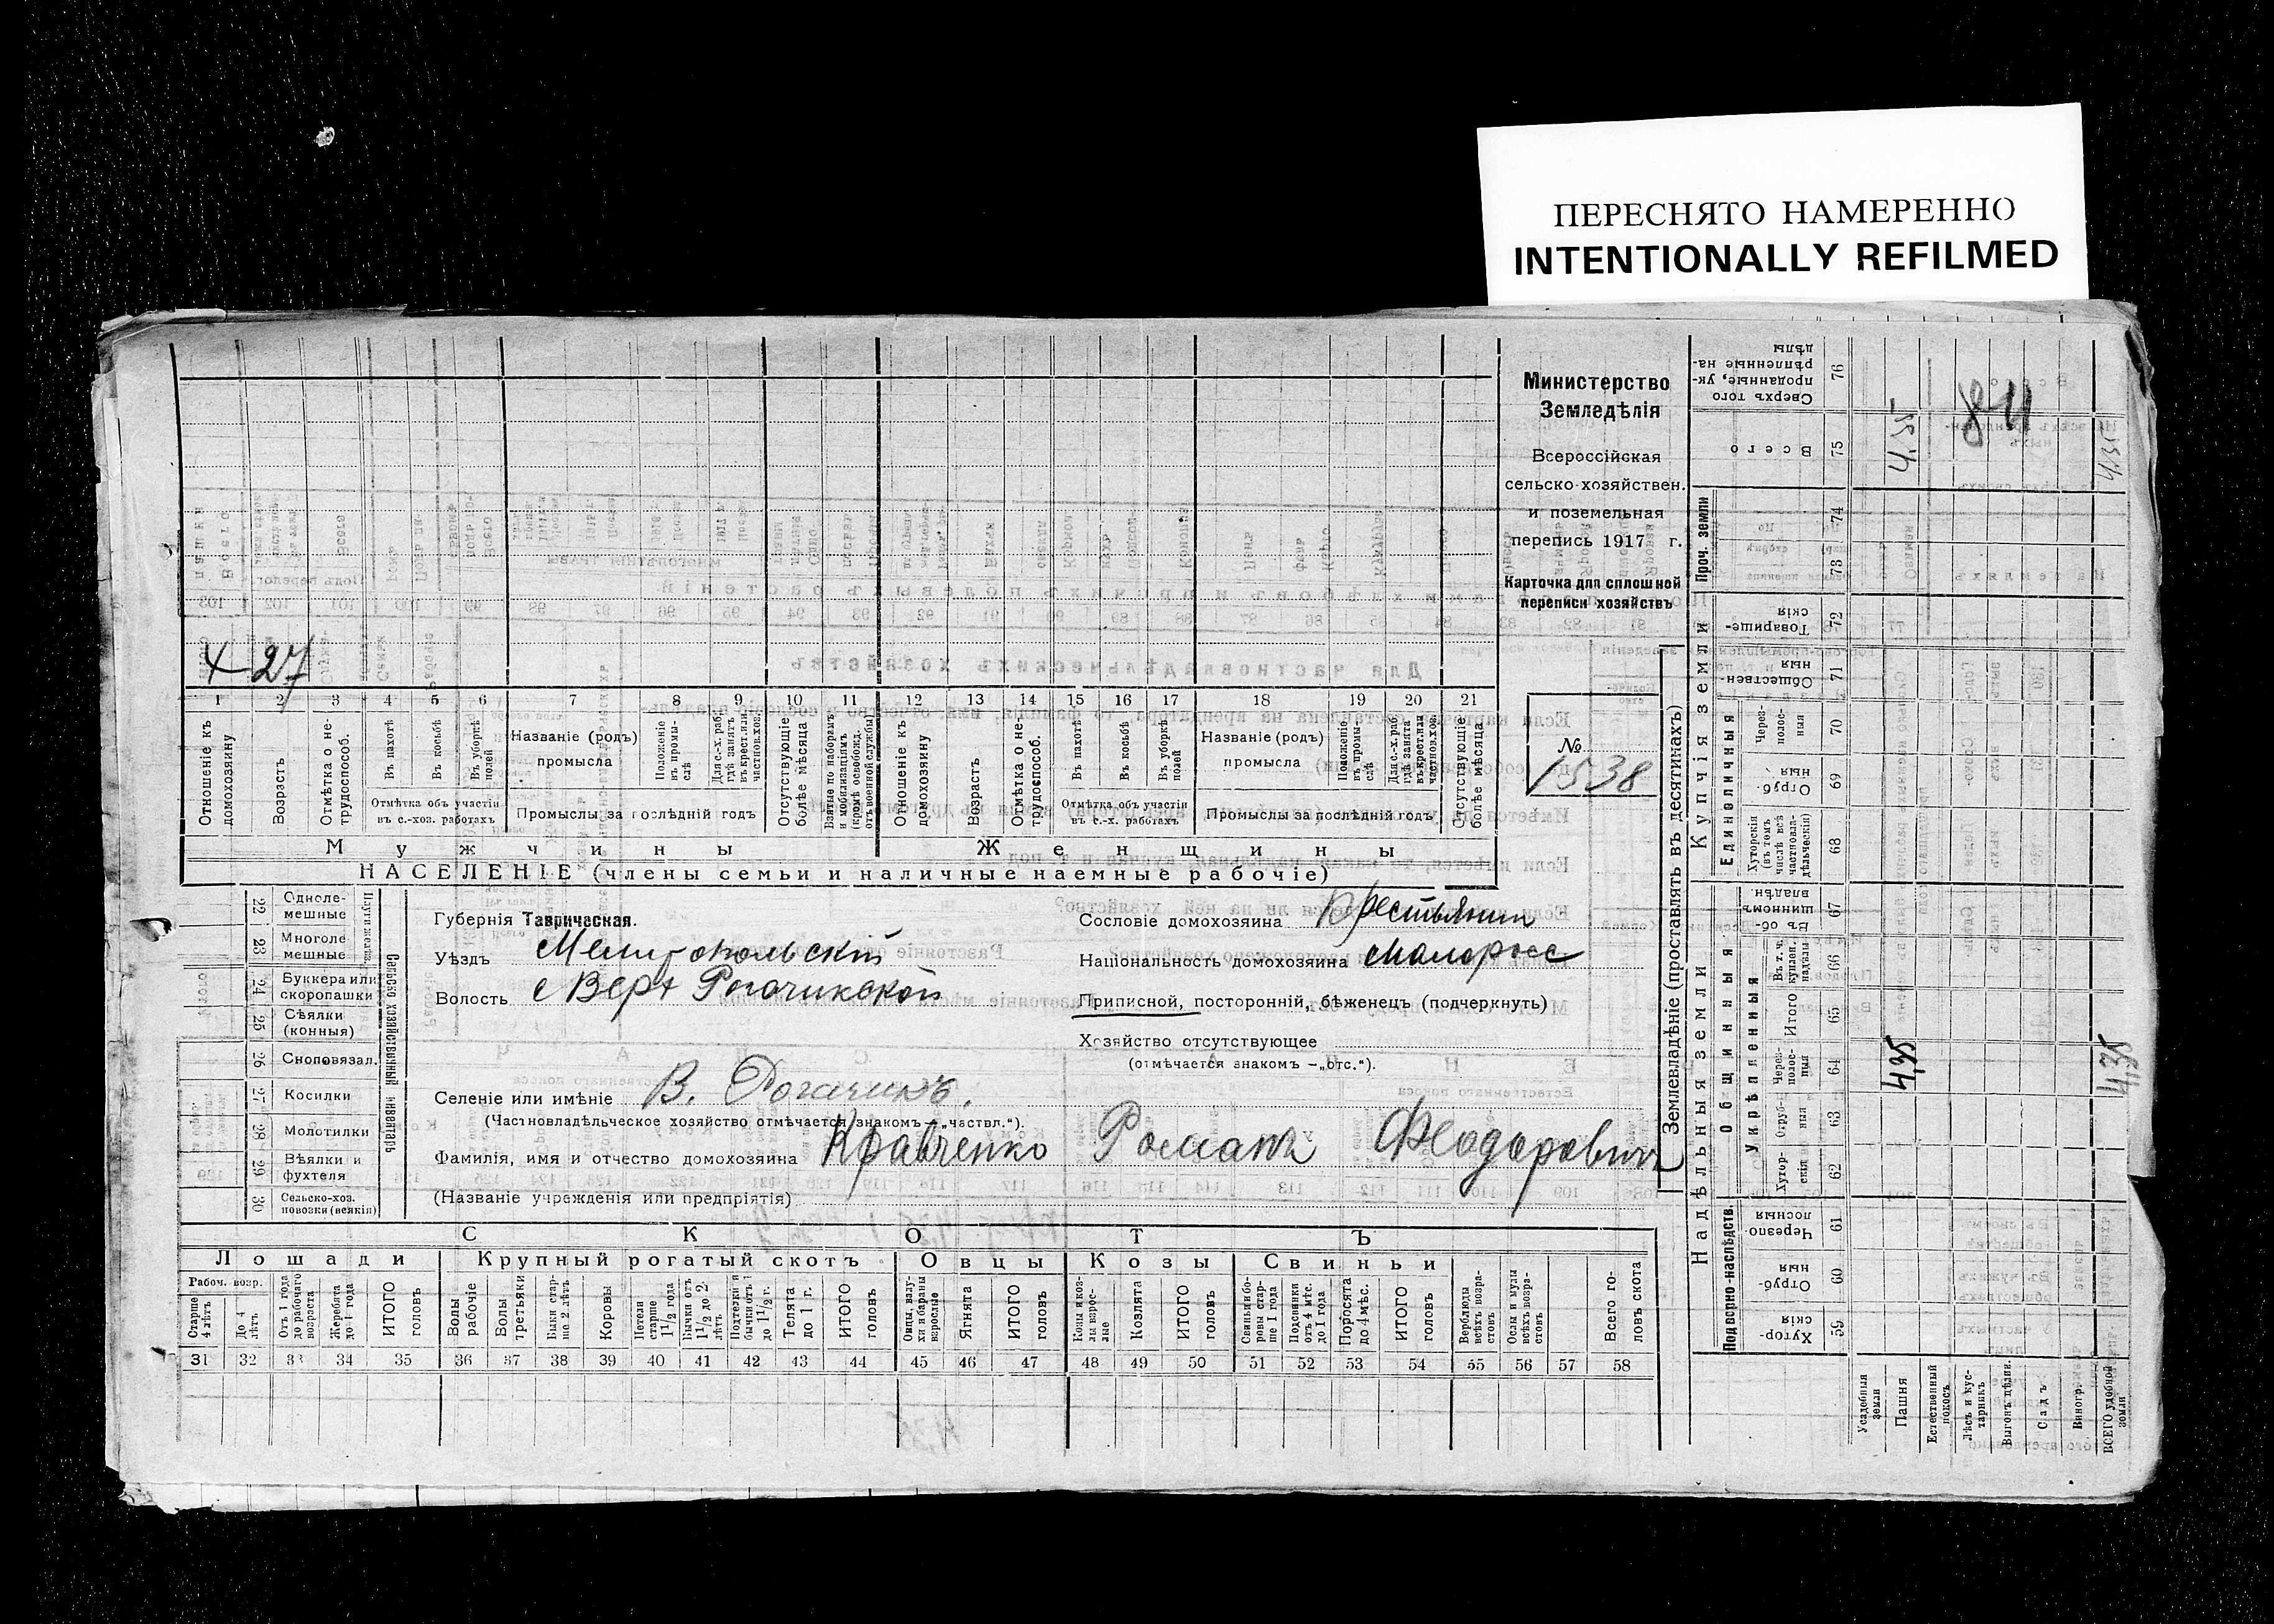 ПЕРЕСНЯТО НАМЕРЕННО
INTENTIONALLY REFILMED
Министерство
Земледѣлія
Всероссійская
сельско-хозяйствен.
и поземельная
перепись 1917 г.
Карточка для сплошной
переписи хозяйствъ
№
1538
27
1 2 3 4 5 6 7 8 9 10 11 12 13 14 15 16 17 18 19 20 21
Отношеніе къ домохозяину
Возрастъ
Отмѣтка о нетрудоспособ.
Въ пахотѣ
Въ косьбѣ
Въ уборкѣ полей
Отмѣтка объ участіи въ с.-хоз. работахъ
Названіе (родъ) промысла
Положеніе въ промыслѣ
Для с.-х. раб. гдѣ занятъ въ крест. или частнов. хоз.
Промыслы за послѣдній годъ
Отсутствующіе болѣе мѣсяца
Взятые по наборамъ и мобилизаціямъ (кромѣ освобожд. отъ военной службы)
Отношеніе къ домохозяину
Возрастъ
Отмѣтка о нетрудоспособ.
Въ пахотѣ
Въ косьбѣ
Въ уборкѣ полей
Отмѣтка объ участіи въ с.-х. работахъ
Названіе (родъ) промысла
Положеніе въ промыслѣ
Для с.-х. раб. гдѣ занята въ крест. или частнов. хоз.
Промыслы за послѣдній годъ
Отсутствующіе болѣе мѣсяца
Мужчины
Женщины
НАСЕЛЕНІЕ (члены семьи и наличные наемные рабочіе)
Плуги желѣзн.
Сельско-хозяйственный инвентарь
22 Однолемешные
23 Многолемешные
24 Буккера или скоропашки
25 Сѣялки (конныя)
26 Сноповязал.
27 Косилки
28 Молотилки
29 Вѣялки и фухтеля
30 Сельско-хоз. повозки (всякія)
Губернія Таврическая.
Уѣздъ Мелитопольскій
Волость с Верх Рогачикской
Селеніе или имѣніе В. Рогачикъ.
(Частновладѣльческое хозяйство отмѣчается знакомъ — „частвл.“).
Фамилія, имя и отчество домохозяина Кравченко Романъ Феодоровичъ
(Названіе учрежденія или предпріятія)
Сословіе домохозяина Крестьянинъ
Національность домохозяина малоросс
Приписной, посторонній, бѣженецъ (подчеркнуть)
Хозяйство отсутствующее
(отмѣчается знакомъ — „отс.“).
СКОТЪ
Лошади
Крупный рогатый скотъ
Овцы
Козы
Свиньи
Рабоч. возр.
Старше 4 лѣтъ
До 4 лѣтъ
Отъ 1 года до рабочаго возраста
Жеребята до 1 года
ИТОГО головъ
Волы рабочіе
Волы третьяки
Быки старше 2 лѣтъ
Коровы
Нетели старше 1 1/2 года
Бычки отъ 1 1/2 до 2 лѣтъ
Подтелки и бычки отъ 1 до 1 1/2 г.
Телята до 1 г.
ИТОГО головъ
Овцы валухи и бараны взрослые
Ягнята
ИТОГО головъ
Козы и козлы взрослые
Козлята
ИТОГО головъ
Свиньи и боровы старше 1 года
Подсвинки отъ 4 мѣс. до 1 года
Поросята до 4 мѣс.
ИТОГО головъ
Верблюды всѣхъ возрастовъ
Ослы и мулы всѣхъ возрастовъ
Всего головъ скота
31 32 33 34 35 36 37 38 39 40 41 42 43 44 45 46 47 48 49 50 51 52 53 54 55 56 57 58
Землевладѣніе (проставлять въ десятинахъ)
Надѣльныя земли
Купчія земли
Проч. земли
Подворно-наслѣдств.
Общинныя
Укрѣпленныя
Единоличныя
Сверхъ того проданные, укрѣпленные надѣлы 76
Всего 75
74
73
Товарищескія 72
Общественныя 71
Черезполосныя 70
Отрубныя 69
Хуторскія (въ томъ числѣ всѣ частновладѣльческія) 68
Въ общинномъ владѣн. 67
Въ т. ч. куплен. надѣлы 66
Итого 65
Черезполосныя 64
Отрубныя 63
Хуторскія 62
Черезполосныя 61
Отрубныя 60
Хуторскія 59
4,35
4,35
4,35
4,35
Усадебныя земли
Пашня
Естественный покосъ
Лѣсъ и кустарникъ
Выгонъ цѣлин.
Садъ
Виногр.
ВСЕГО удобной земли